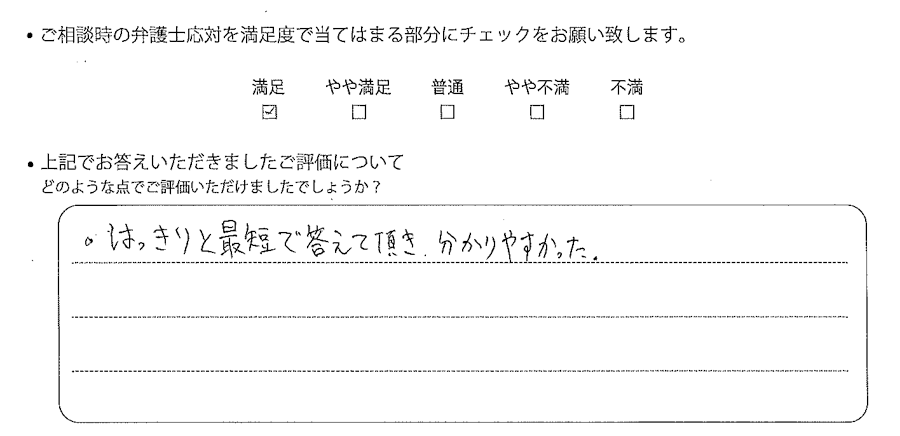 ・ご相談時の弁護士応対を満足度で当てはまる部分にチェックをお願い致します。
満足 やや満足 普通 やや不満 不満
☑ □ □ □ □
・上記でお答えいただきましたご評価について
どのような点でご評価いただけましたでしょうか？
。はっきりと最短で答えて頂き、分かりやすかった。